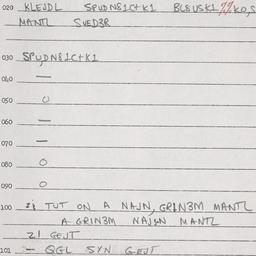 020 KLEJDL SPUDN81C+K1 BL8USK1 77KO,S
MANTL SVED3R
030 SPUDN81C+K1
040 —
050 O
060 —
070 —
080 O
090 O
100 TUT ON A NAJN, GRIN3M MANTL
A GRIN3M NAJSN MANTL
2! GEJT
101 — QGL SYN GEJT